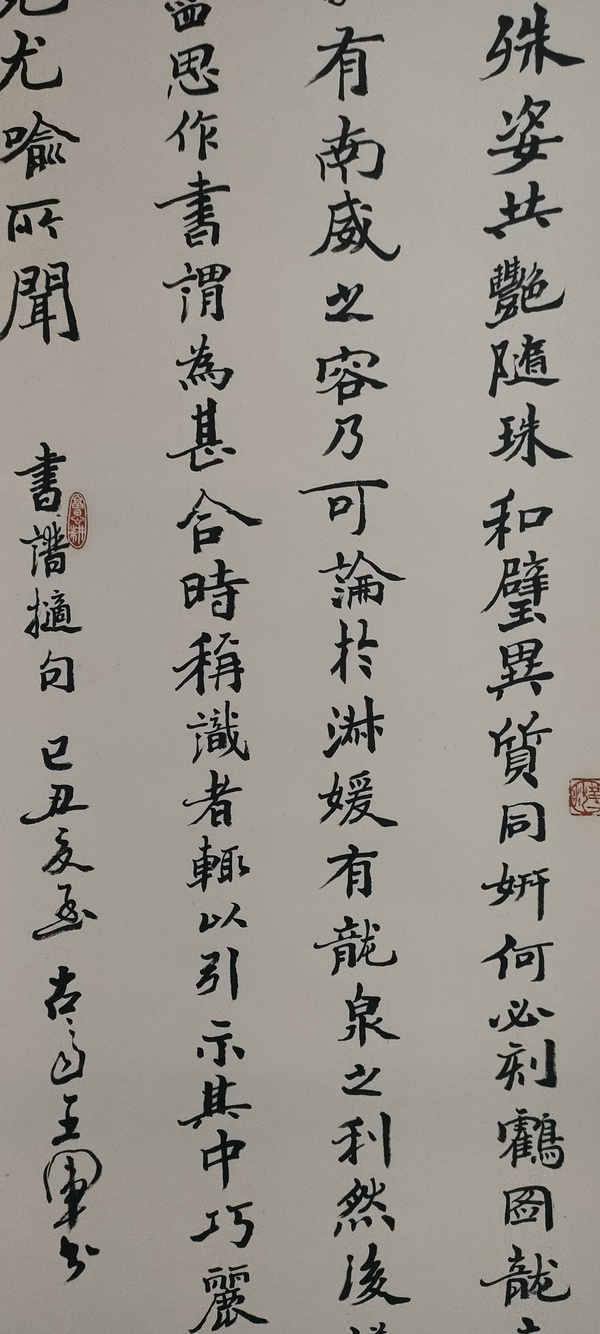 殊姿共艷隨珠和璧異質同妍何必刻鶴圖龍
有南威之容乃可論於淋媛有龍泉之利然後
思作書謂為甚合時稱識者輙以引示其中巧麗
尤喻所聞
書譜擿句 己丑夏至 古 王軍书